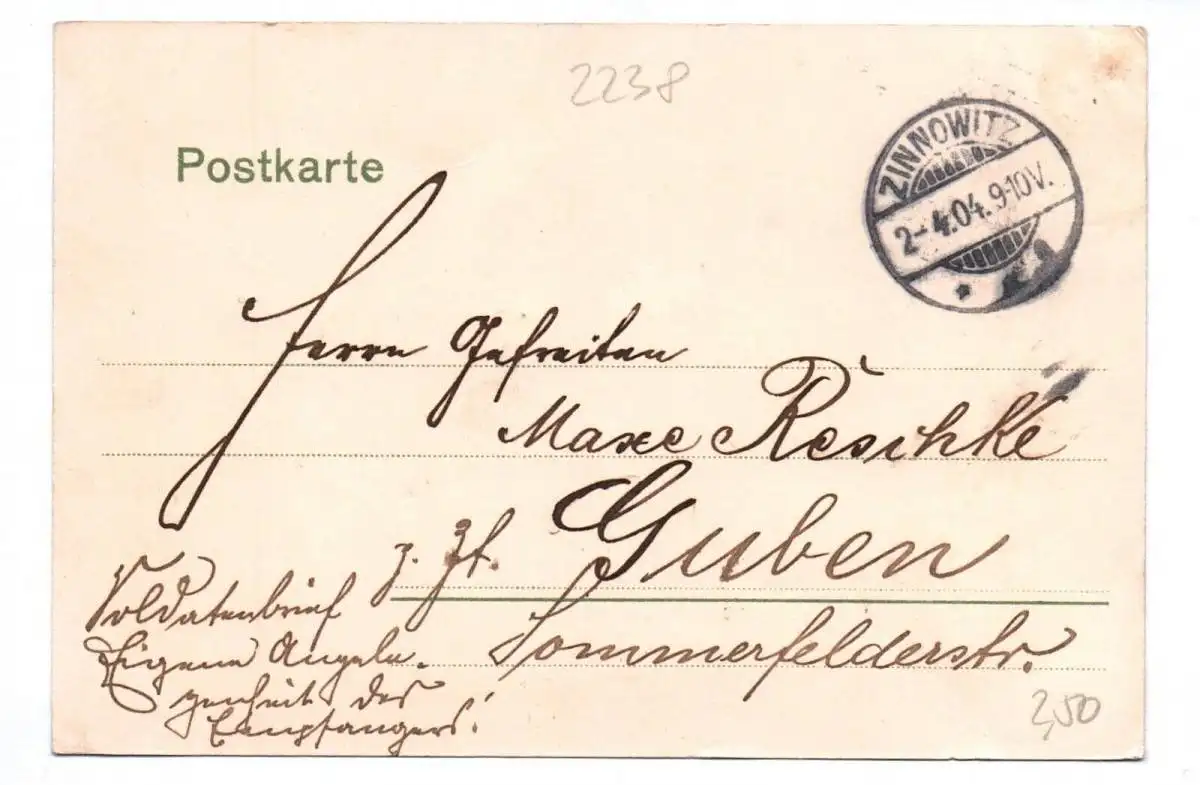 2238
Postkarte
ZINNOWITZ
2-4.04. 9-10V.
Herrn Gefreiten
Maxe Reschke
z. Zt. Guben
Sommerfelderstr.
Soldatenbrief
Eigene Angele-
genheit des
Empfängers!
2,50